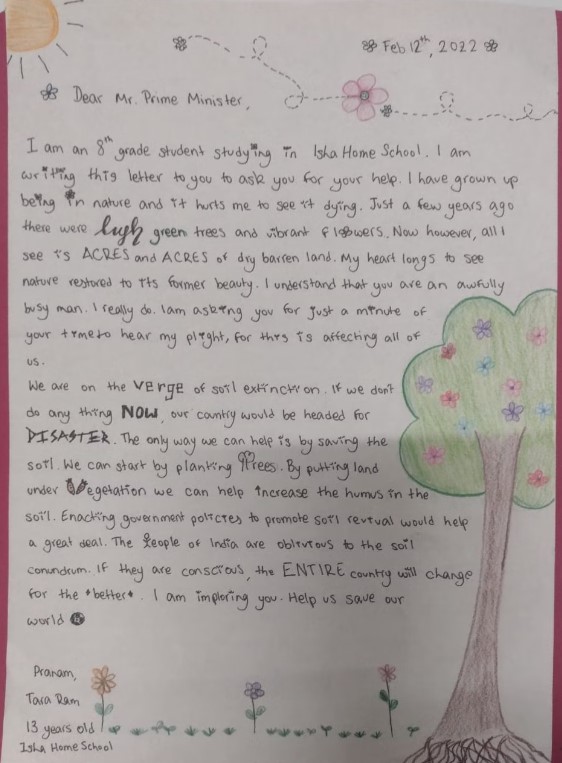 Feb 12th, 2022
Dear Mr. Prime Minister,
I am an 8th grade student studying in Isha Home School. I am
writing this letter to you to ask you for your help. I have grown up
being in nature and it hurts me to see it dying. Just a few years ago
there were lush green trees and vibrant flowers. Now however, all I
see is ACRES and ACRES of dry barren land. My heart longs to see
nature restored to its former beauty. I understand that you are an awfully
busy man. I really do. I am asking you for just a minute of
your time to hear my plight, for this is affecting all of
us.
We are on the verge of soil extinction. If we don't
do any thing NOW, our country would be headed for
DISASTER. The only way we can help is by saving the
soil. We can start by planting trees. By putting land
under Vegetation we can help increase the humus in the
soil. Enacting government policies to promote soil revival would help
a great deal. The people of India are oblivious to the soil
conundrum. If they are conscious, the ENTIRE country will change
for the *better*. I am imploring you. Help us save our
world
Pranam,
Tara Ram
13 years old
Isha Home School